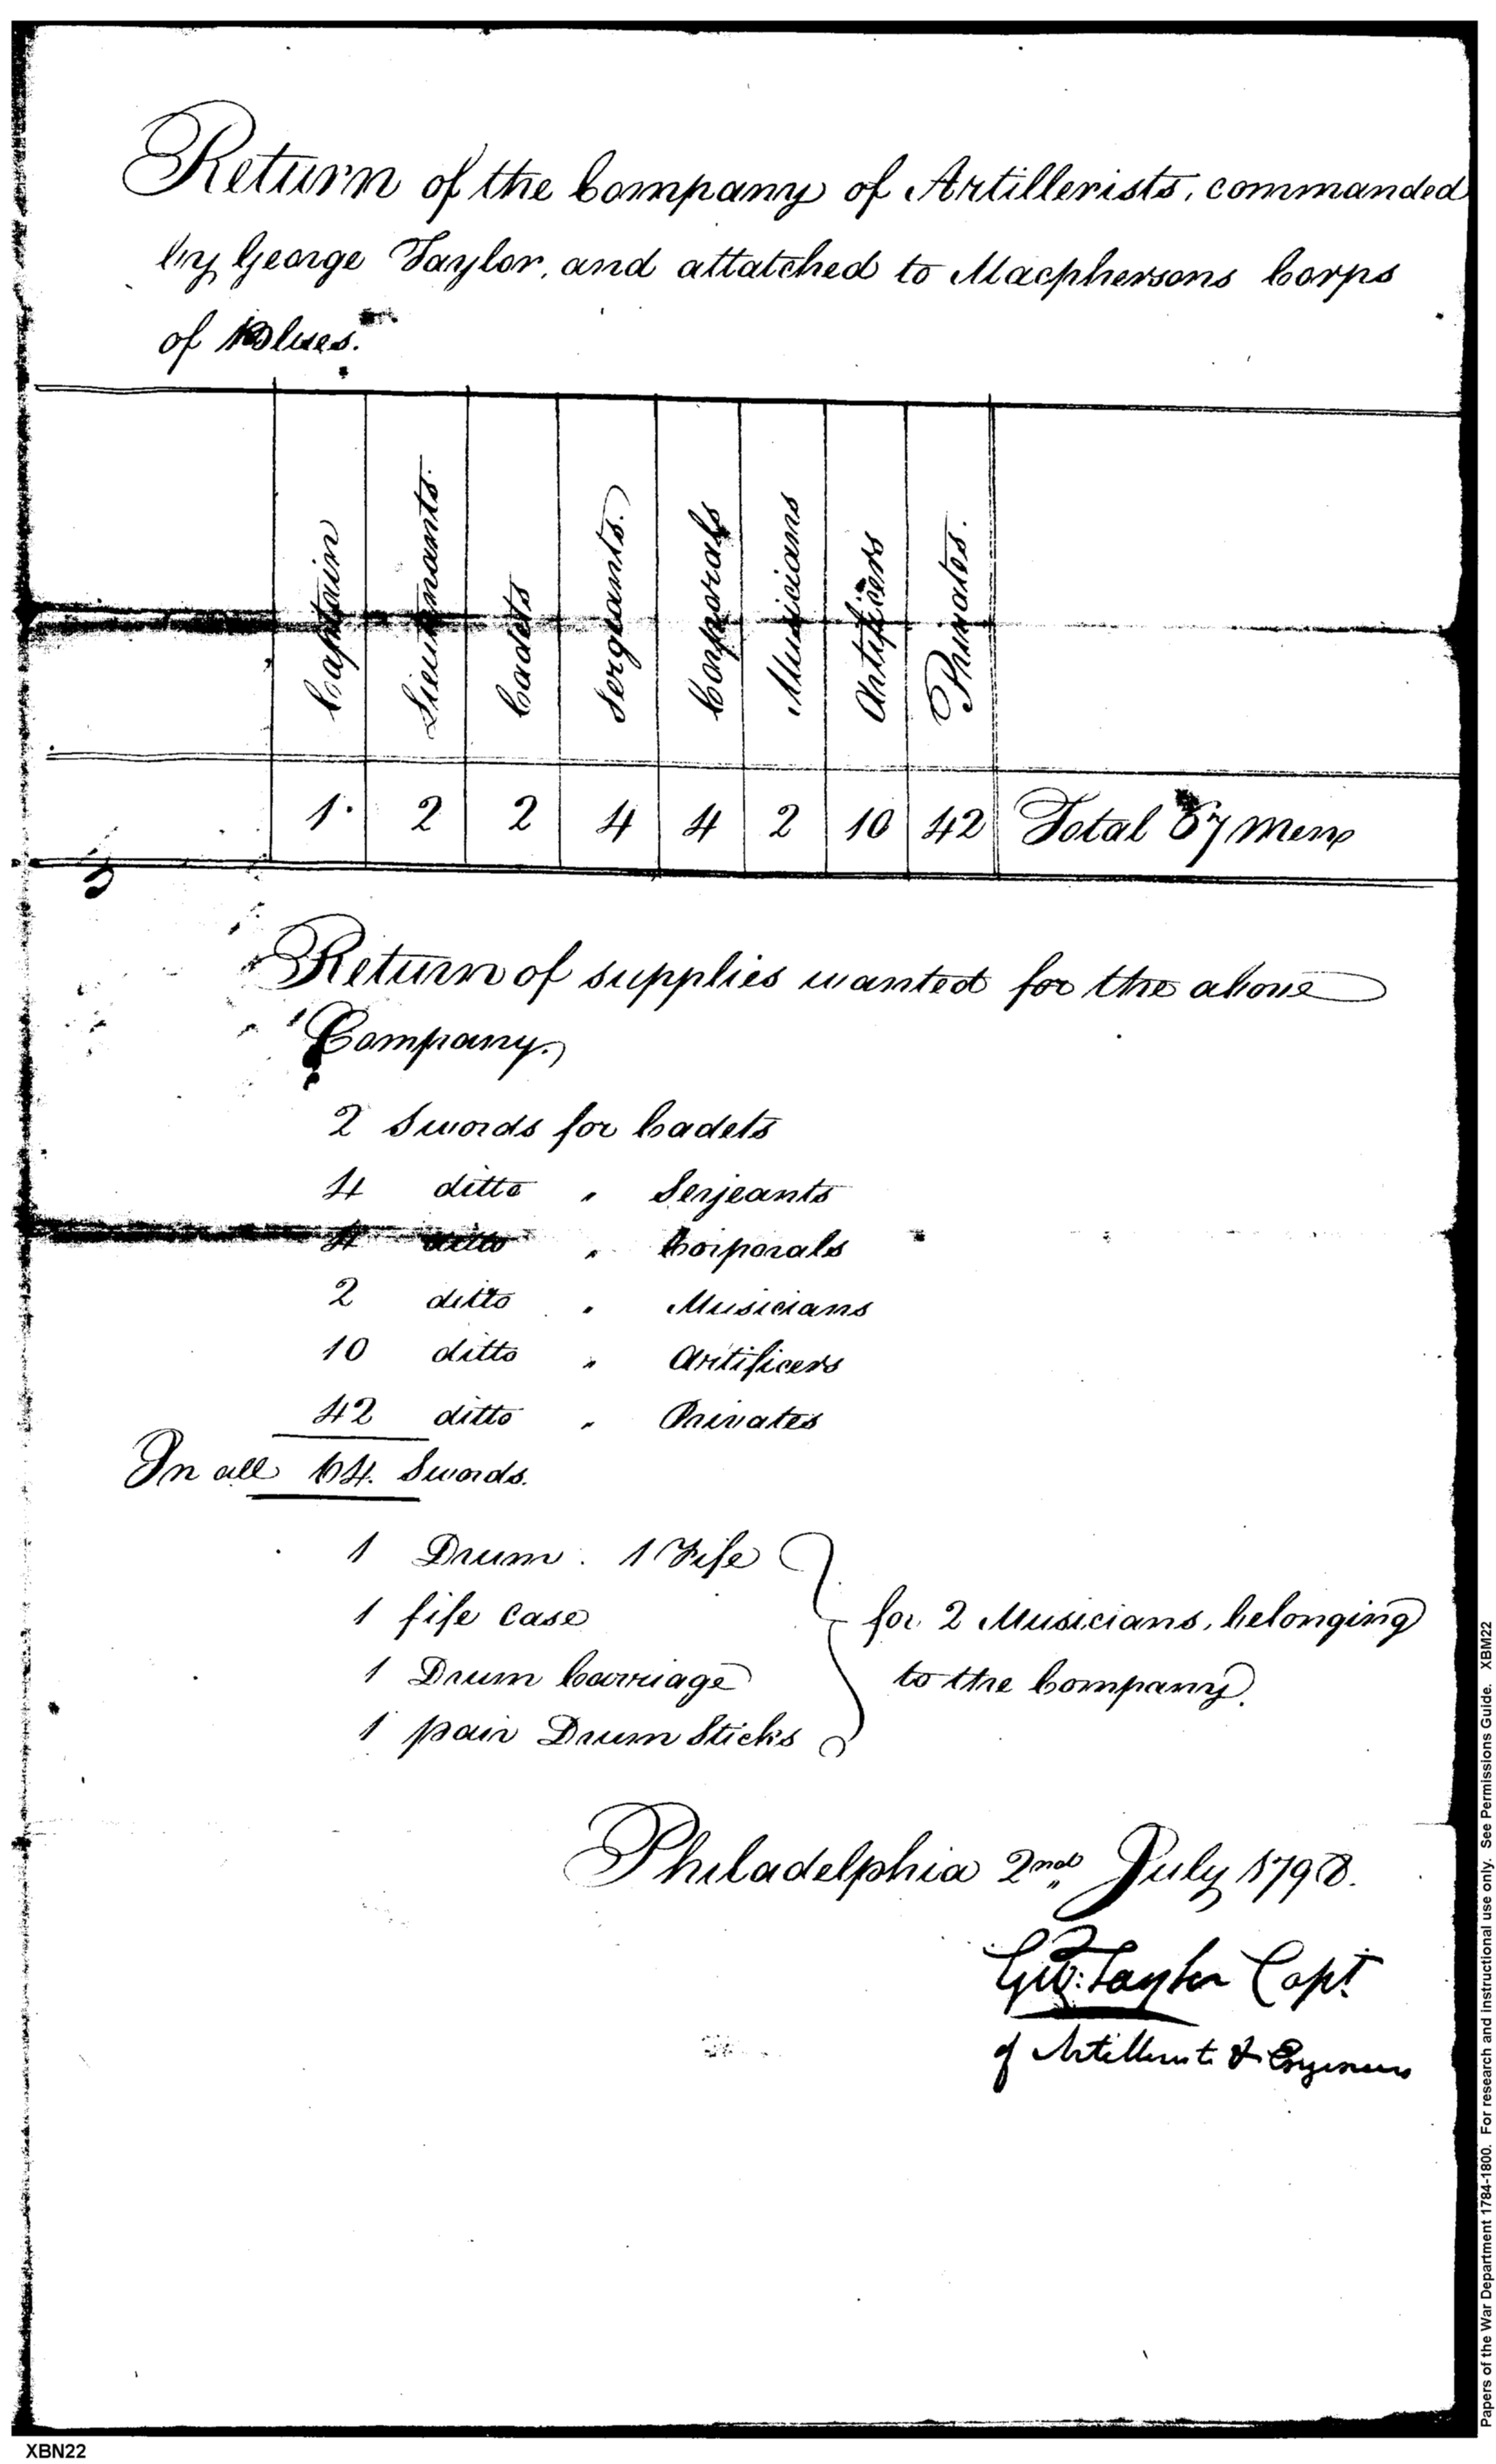 Return of the Company of Artillerists, commanded
by George Taylor, and attatched to Macphersons Corps
of Blues.
Captain Lieutenants. Cadets Serguants. Corporals Musicians Artificers Privates.
1. 2 2 4 4 2 10 42 Total 67 Men
Return of supplies wanted for the above
Company.
2 Swords for Cadets
4 ditto " Serjeants
4 ditto " Corporals
2 ditto " Musicians
10 ditto " Artificers
42 ditto " Privates
In all 64. Swords.
1 Drum. 1 Fife
1 fife case
1 Drum Carriage
1 pair Drum Sticks
for 2 Musicians, belonging
to the Company.
Philadelphia 2nd July 1798.
Geo: Taylor Capt
of Artillerists & Engineers
Papers of the War Department 1784-1800. For research and instructional use only. See Permissions Guide. XBM22
XBN22